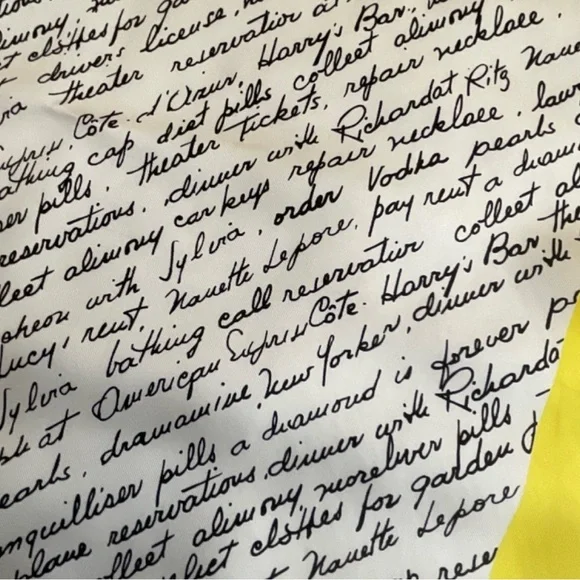 t clothes for ga
drivers license
theater reservation a
Côte d'Azur, Harry's Bar,
cap diet pills collect alimony
pills, theater tickets, repair necklace.
reservations, dinner with Richard at Ritz Nane
alimony car keys repair necklace, law
with Sylvia, order Vodka pearls
Lucy, rent, Nanette Lepore, pay rent a
Sylvia bathing call reservation collect al
at American Express Côte. Harry's Bar, the
pearls, dramamine, New Yorker, dinner with
tranquilliser pills a diamond is forever
plane reservations, dinner with Richard a
collect alimony, more liver pills
collect clothes for garden
Nanette Lepore
rese